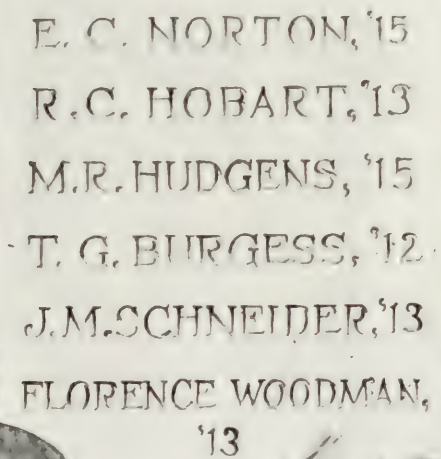 E. C. NORTON, '15
R. C. HOBART, '13
M. R. HUDGENS, '15
T. G. BURGESS, '12
J. M. SCHNEIDER, '13
FLORENCE WOODMAN,
'13